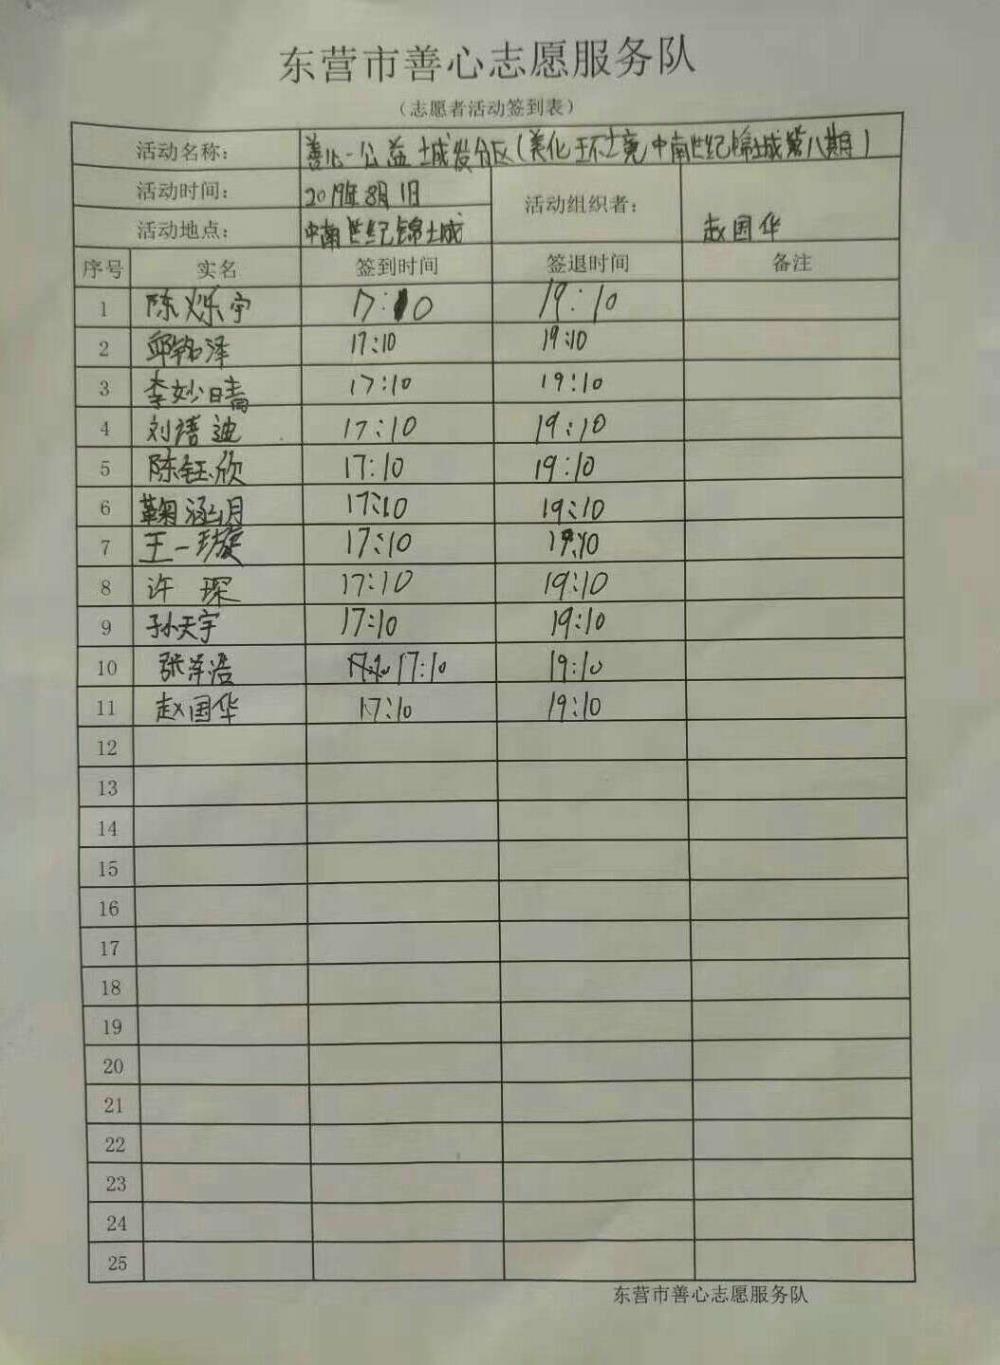 东营市善心志愿服务队
（志愿者活动签到表）
活动名称： 善心-公益 城发分区(美化环境中南世纪锦城第八期)
活动时间： 2019年8月1日
活动组织者： 赵国华
活动地点： 中南世纪锦城
序号 实名 签到时间 签退时间 备注
1 陈烁宇 17:10 19:10
2 邱铭泽 17:10 19:10
3 李妙晴 17:10 19:10
4 刘语迪 17:10 19:10
5 陈钰欣 17:10 19:10
6 鞠涵月 17:10 19:10
7 王一璇 17:10 19:10
8 许琛 17:10 19:10
9 孙天宇 17:10 19:10
10 张洋浩 17:10 19:10
11 赵国华 17:10 19:10
12
13
14
15
16
17
18
19
20
21
22
23
24
25
东营市善心志愿服务队